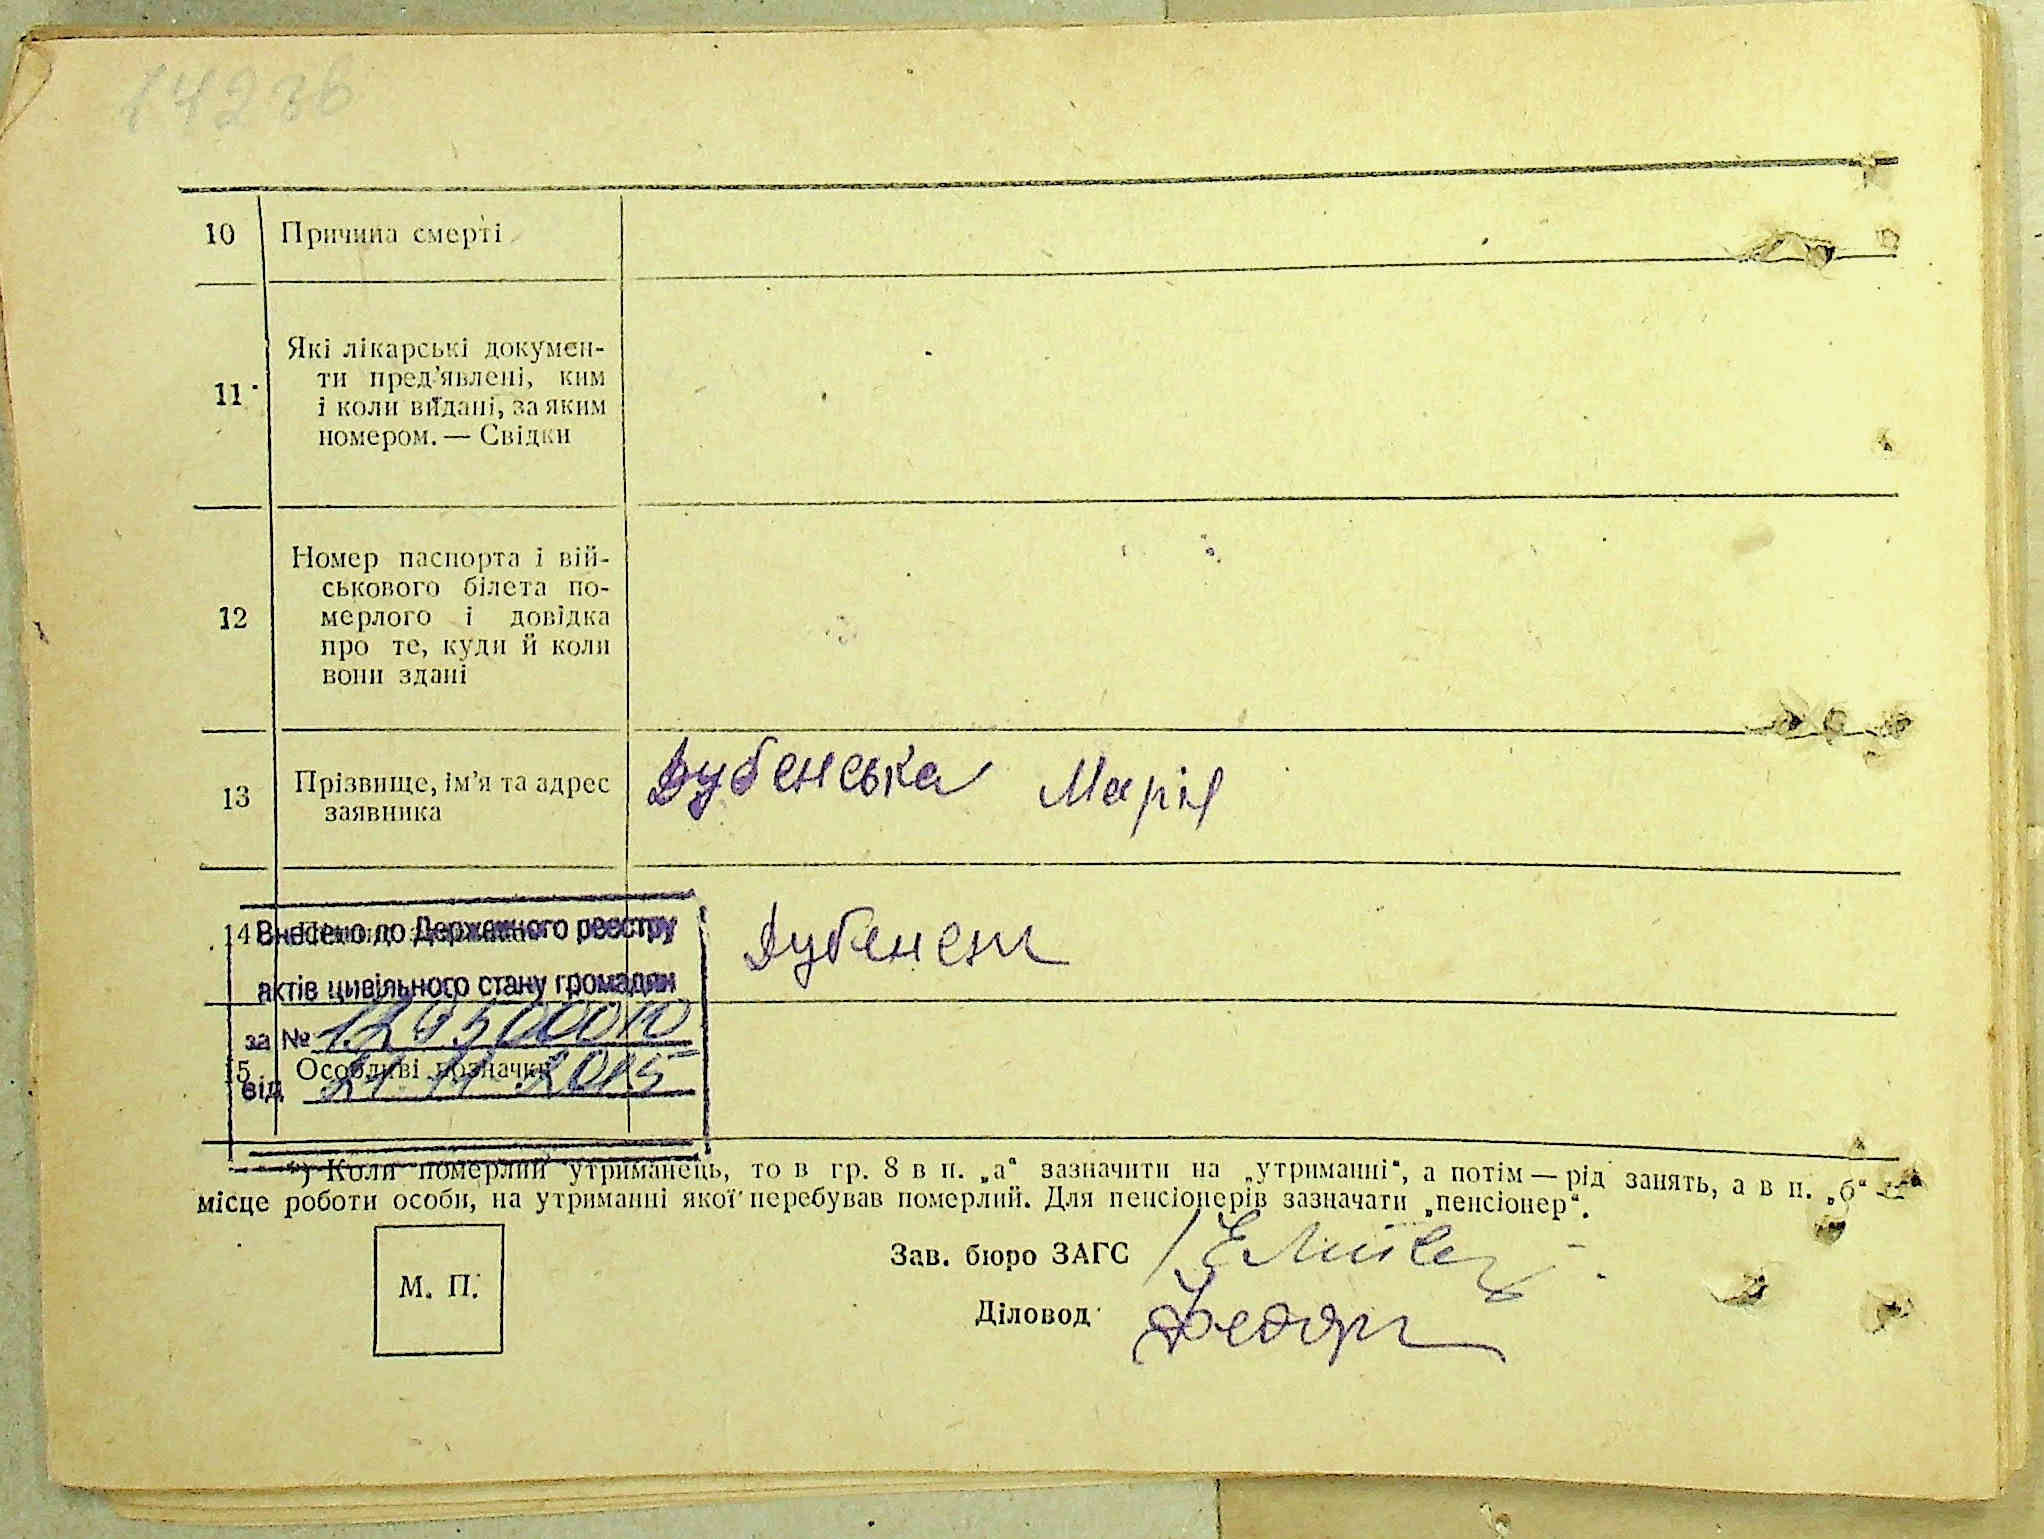 14236
10 Причина смерті
11 Які лікарські докумен-
ти пред'явлені, ким
і коли видані, за яким
номером. — Свідки
12 Номер паспорта і вій-
ськового білета по-
мерлого і довідка
про те, куди й коли
вони здані
13 Прізвище, ім'я та адрес
заявника
Дубенська Марія
14
Внесено до Державного реєстру
актів цивільного стану громадян
за №
15 Особливі позначки
від 21.11.2015
*) Коли померлий утриманець, то в гр. 8 в п. „а“ зазначити на „утриманні“, а потім — рід занять, а в п. „б“ —
місце роботи особи, на утриманні якої перебував померлий. Для пенсіонерів зазначати „пенсіонер“.
М. П.
Зав. бюро ЗАГС
Діловод